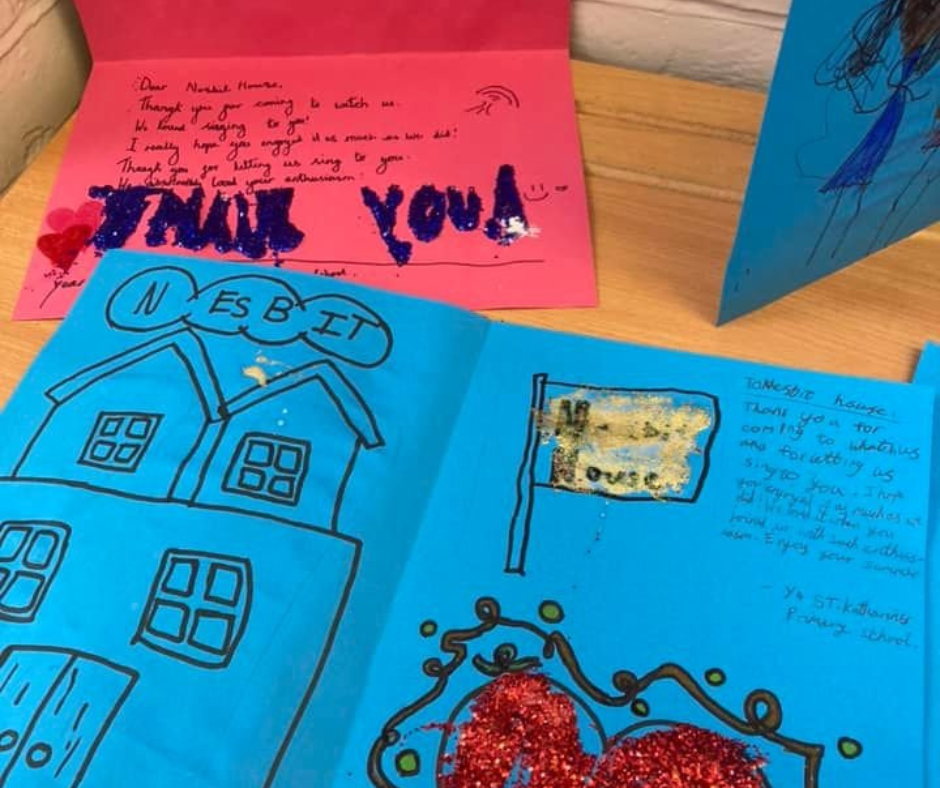 Dear Nesbit House,
Thangk you for coming to watch us.
We loved singing to you!
I really hope you enjoyed it as much as we did!
Thangk you for letting us sing to you.
We absolutely loved your enthusiasm!
THANK YOU!
School.
year
NESBIT
N
House
To Nesbit house.
Thank you for
coming to whatch us
and for letting us
sing to you. I hope
you enjoyed it as much as we
did. We when you
joined in with such enthus-
iasm. Enjoy your summer
- Y4 ST. Katharines
Primary school.